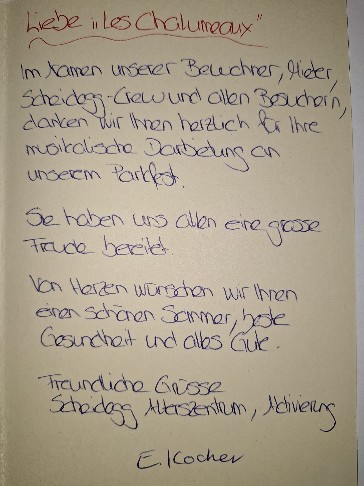 Liebe „Les Chalumeaux"
Im Namen unserer Bewohner, Mieter,
Scheidegg-Crew und allen Besuchern,
danken wir Ihnen herzlich für Ihre
musikalische Darbietung an
unserem Parkfest.
Sie haben uns allen eine grosse
Freude bereitet.
Von Herzen wünschen wir Ihnen
einen schönen Sommer, beste
Gesundheit und alles Gute.
Freundliche Grüsse
Scheidegg Alterszentrum, Aktivierung
E. Kocher